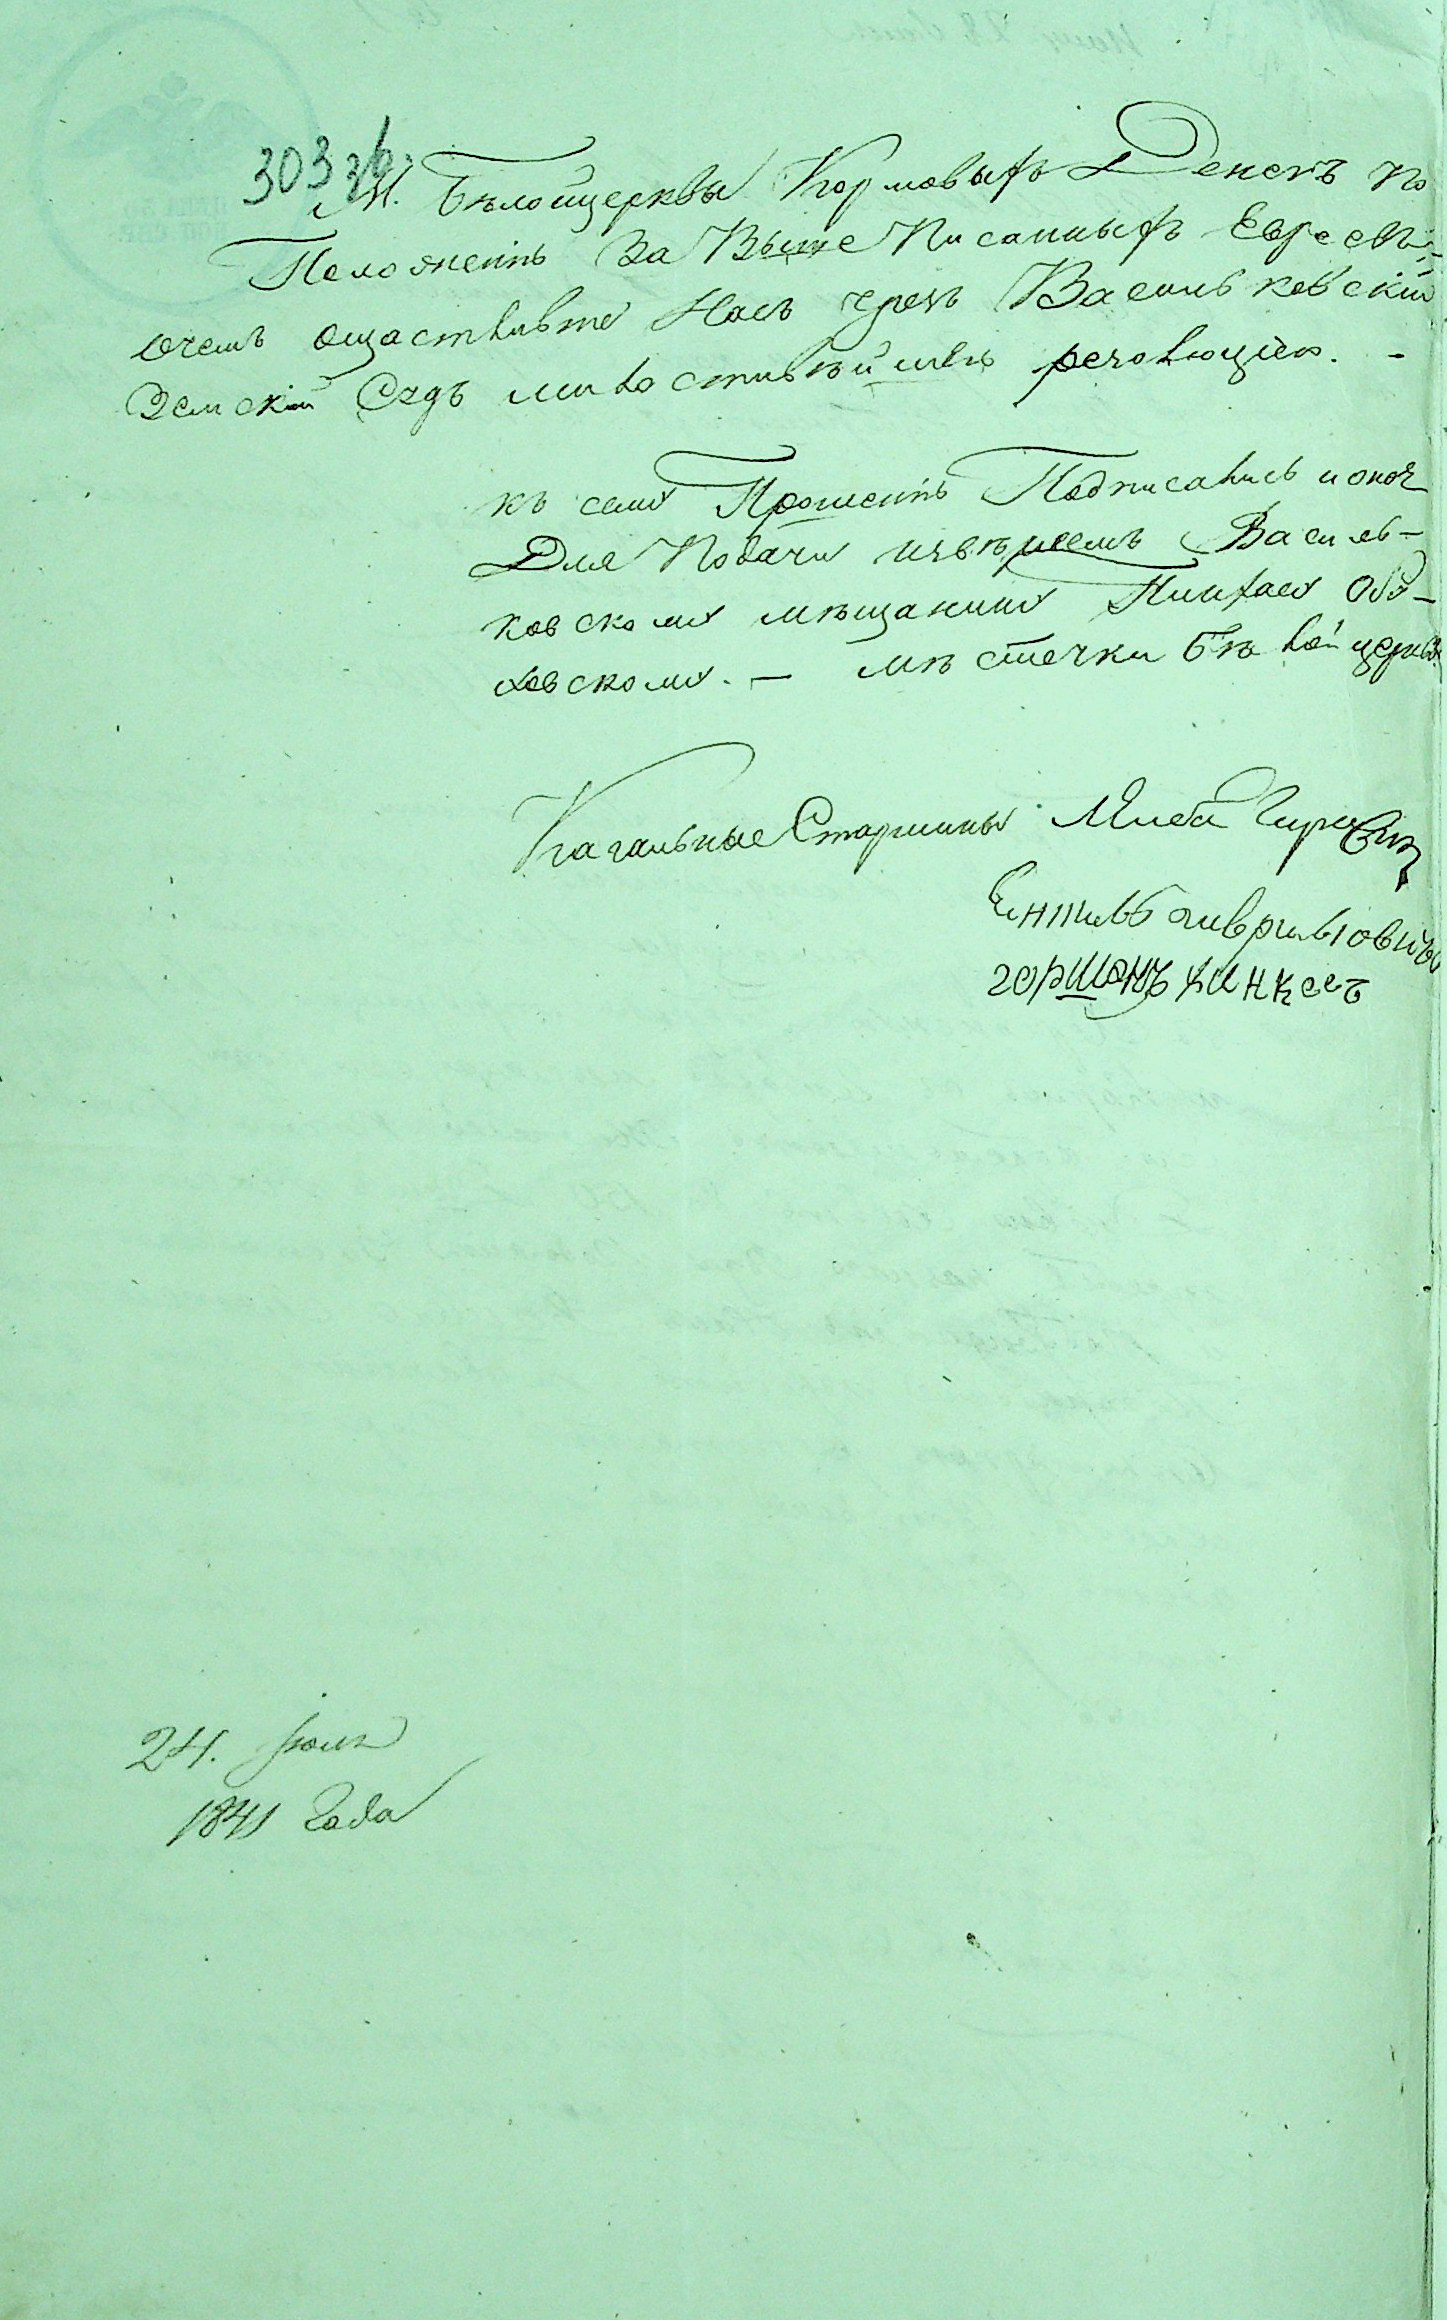 303 зв.
М. Белойцерквы Кормовыхъ Денегъ по
Положенію За Выше Писанныхъ Евреевъ,
очемъ ощастливте Насъ чрезъ Васильковскій
Земскій Судъ милостивѣйшею резолюціею. -
къ сему Прошенію Подписались и оной
Для Подачи извѣряемъ Василь-
ковскому мѣщанину Пинхасу Обу-
ховскому. — мѣстечки Бѣлойцеркви
Кагальные Старшины
Гершонъ Пинксъ
24. Іюля
1841 года